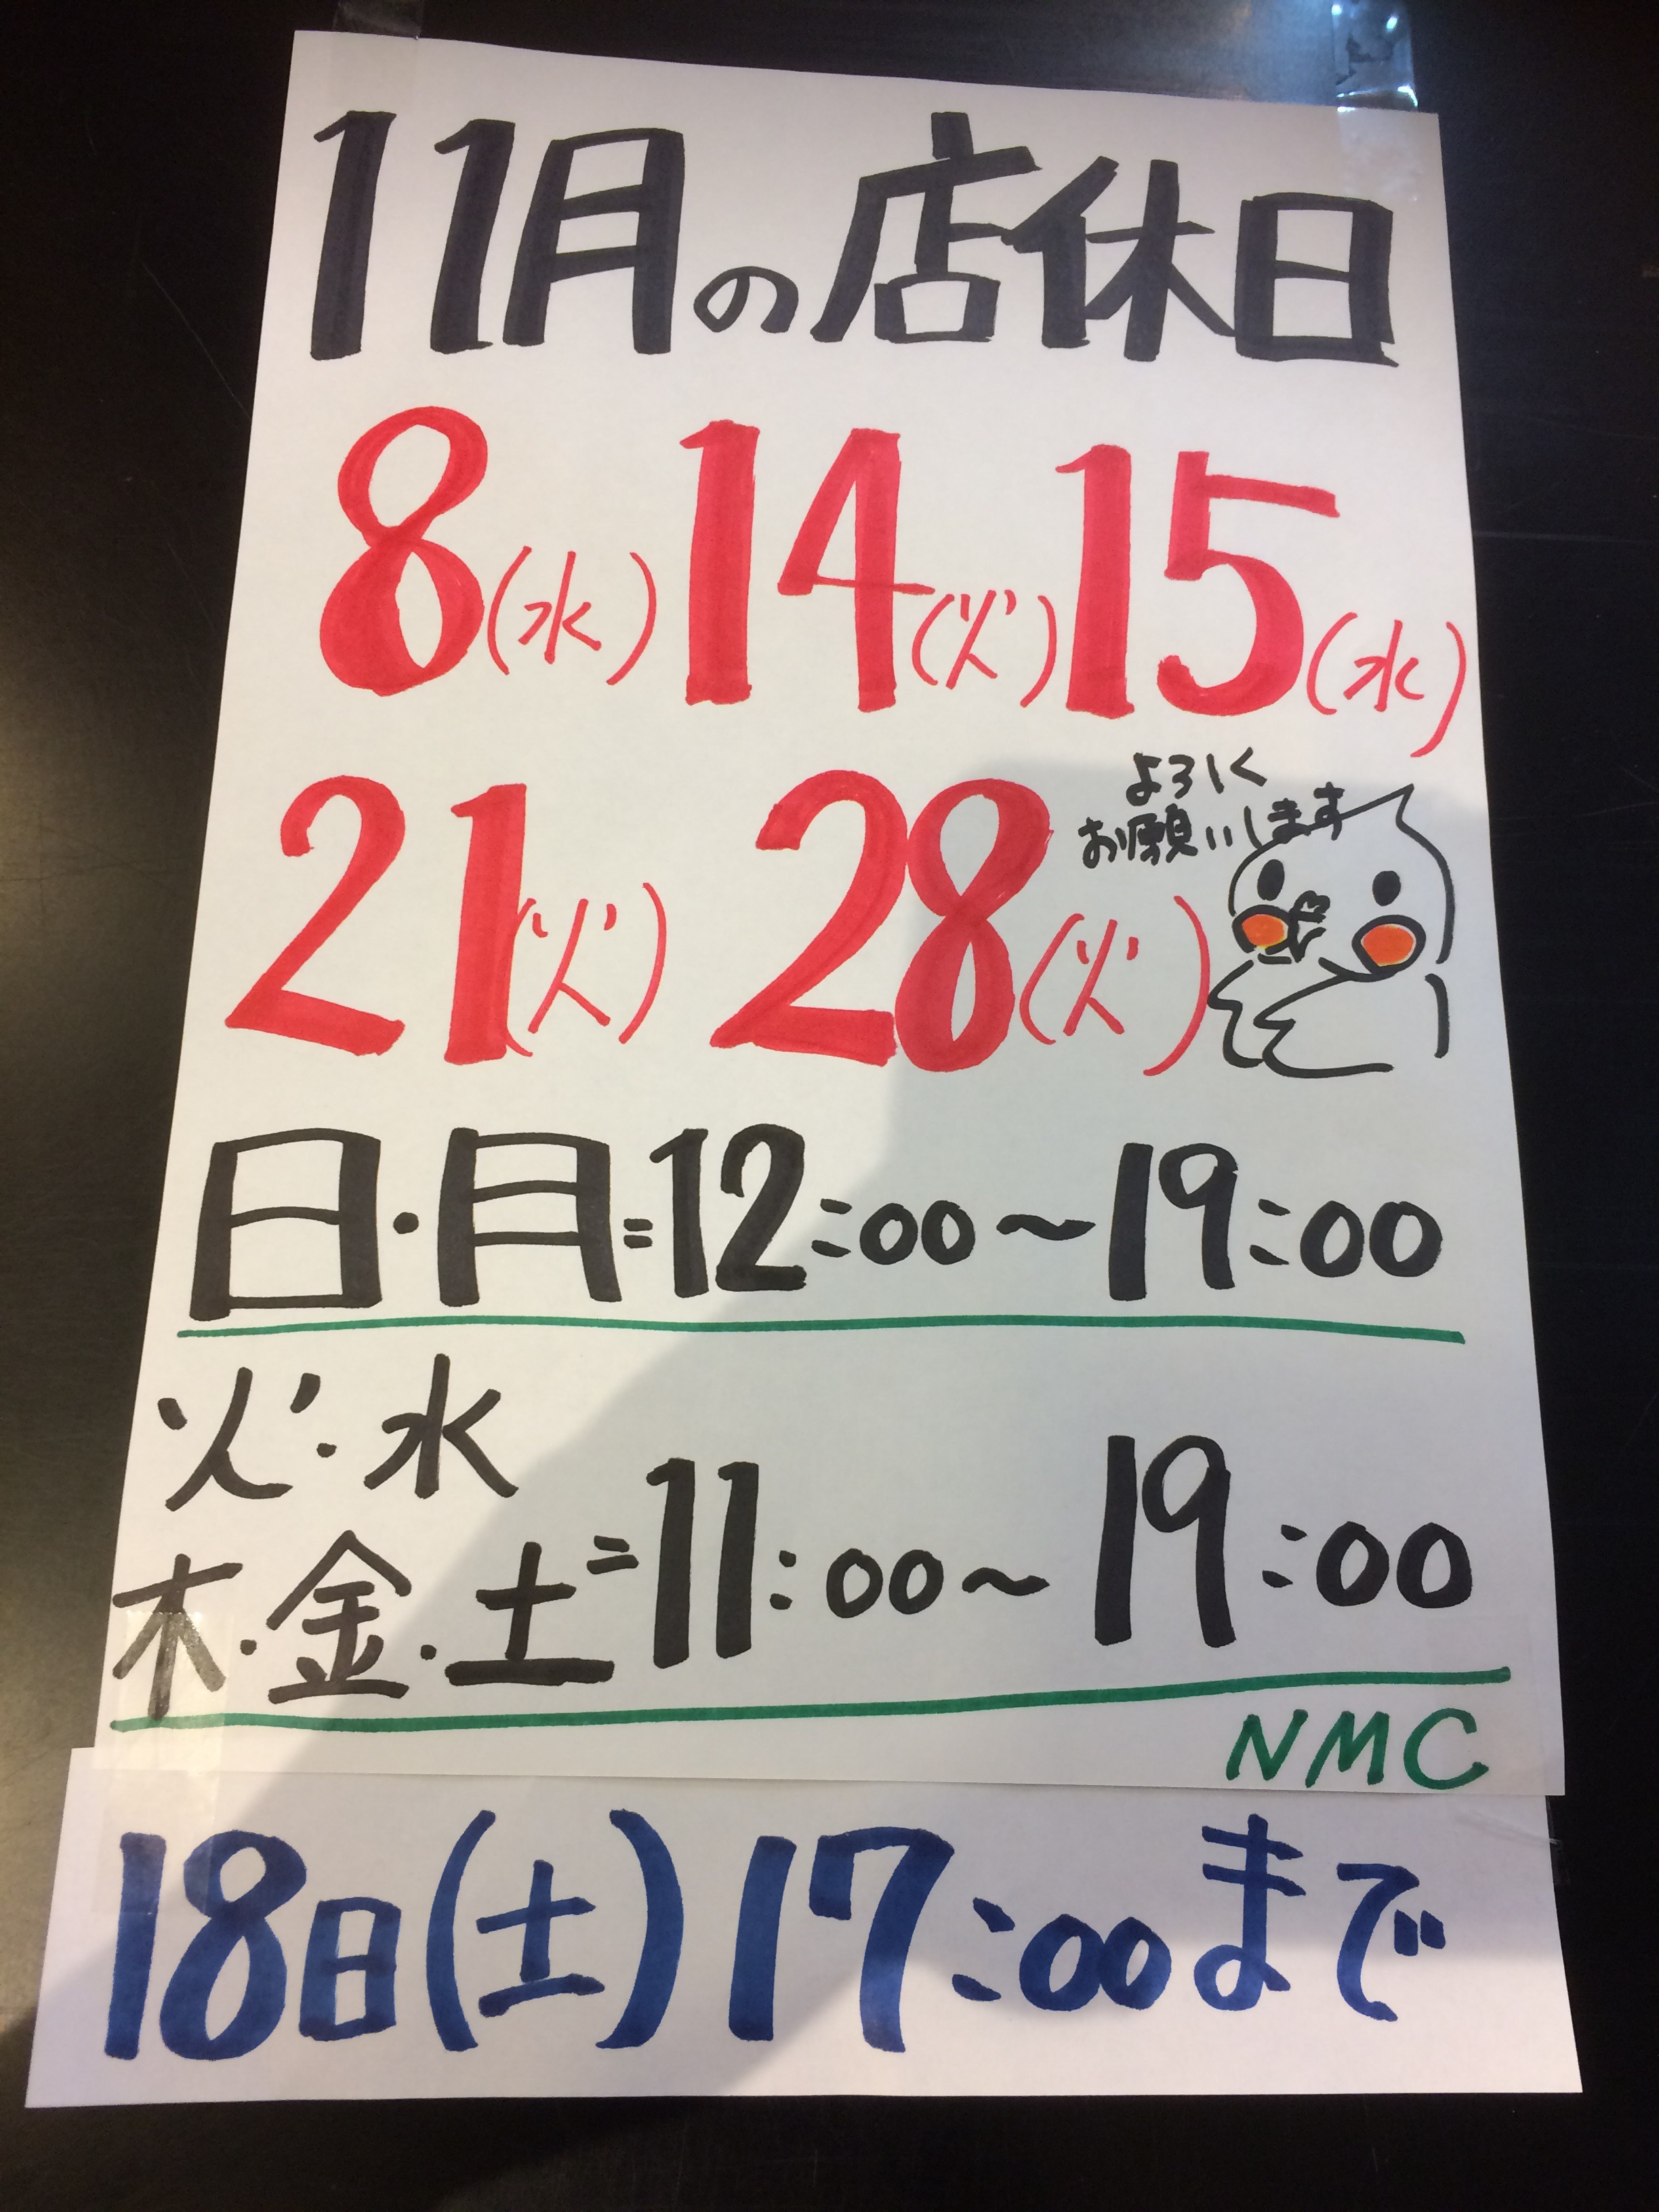 11月の店休日
8(水) 14(火) 15(水)
よろしく
お願いします
21(火) 28(火)
日・月=12:00～19:00
火・水
木・金・土=11:00～19:00
NMC
18日(土)17:00まで